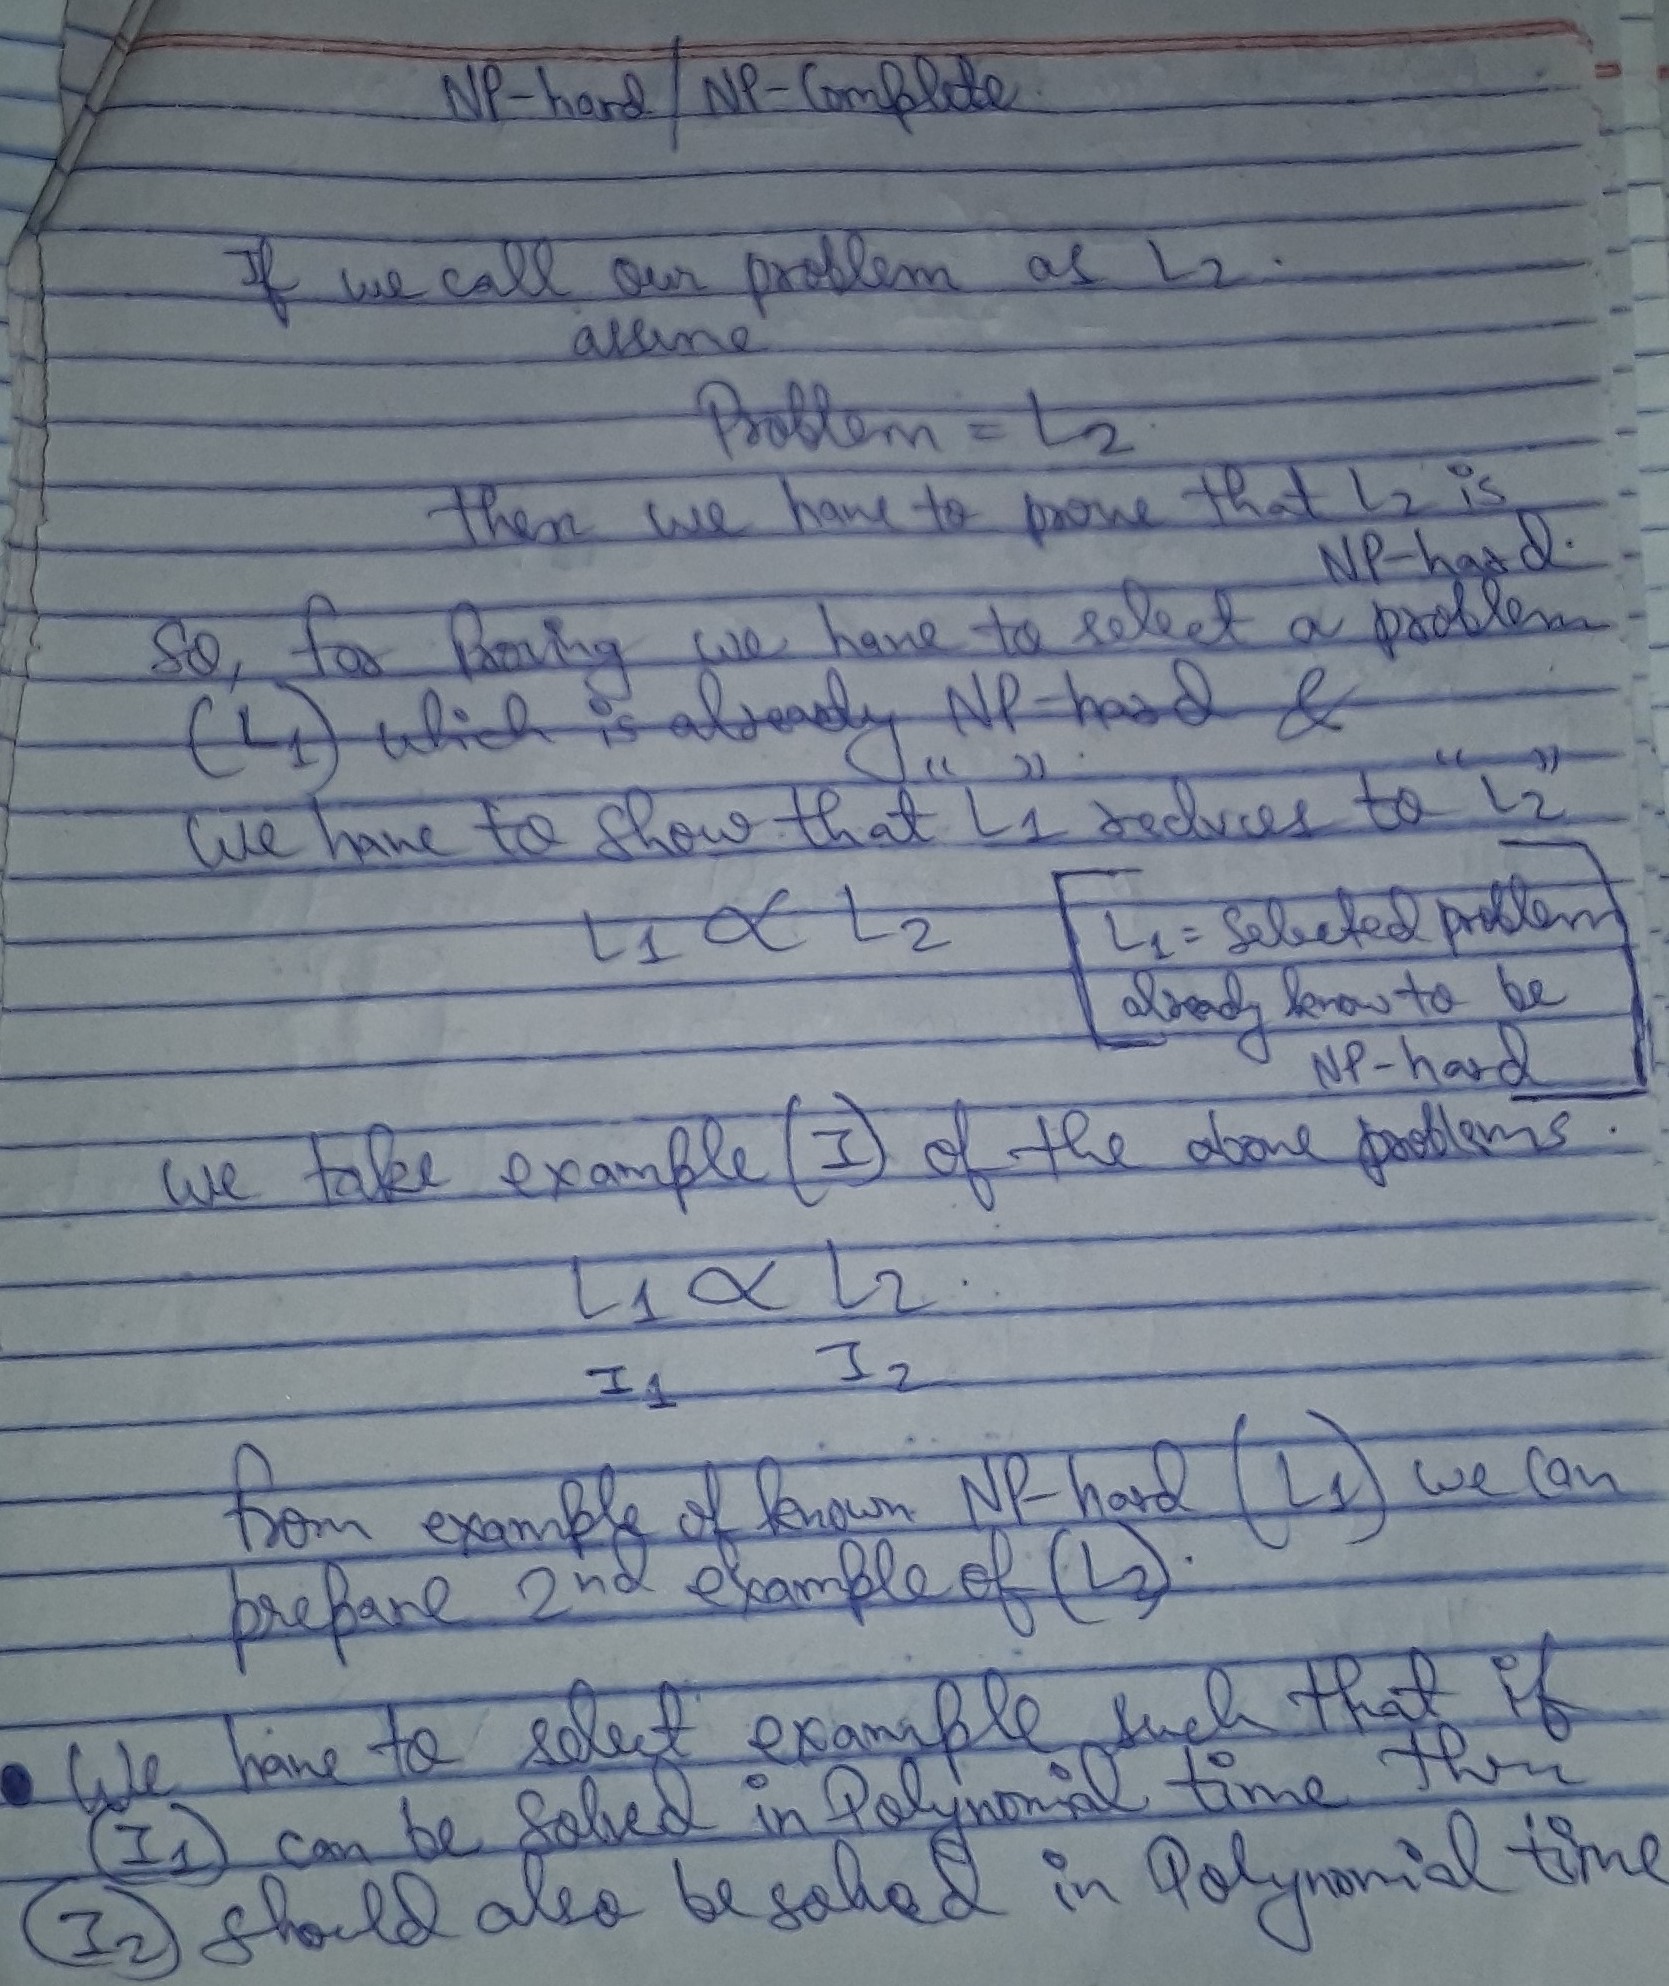 NP-hard / NP-Complete
If we call our problem as L2.
assume
Problem = L2.
then we have to prove that L2 is
NP-hard.
So, for Proving we have to select a problem
(L1) which is already NP-hard &
" " " "
We have to show that L1 reduces to L2
L1 ∝ L2
[L1 = Selected problem
already know to be
NP-hard]
we take example (I) of the above problems.
L1 ∝ L2.
I1 I2
from example of known NP-hard (L1) we can
prepare 2nd example of (L2).
• We have to select example such that if
(I1) can be solved in Polynomial time then
(I2) should also be solved in Polynomial time